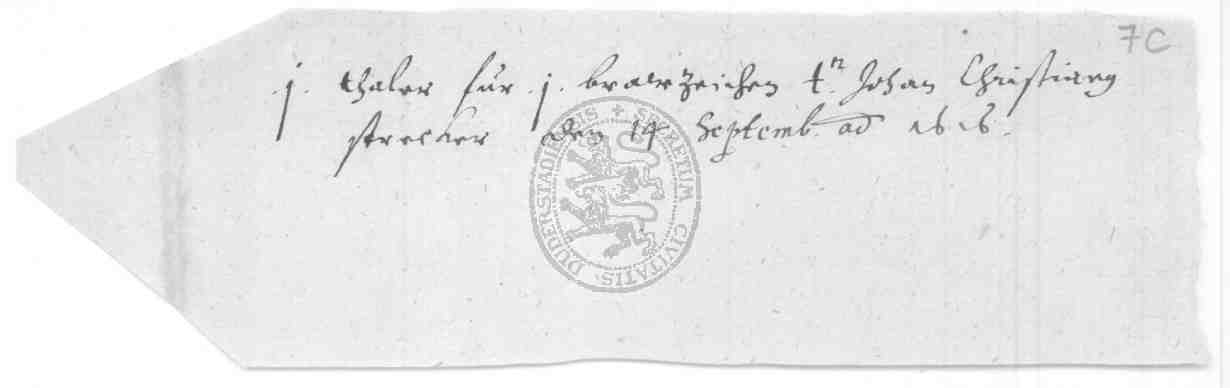 7C
.j. thaler für .j. brawzeichen tn Johan Christian
strecker den 14 Septemb. ad 1616.
SECRETUM CIVITATIS DUDERSTADIENSIS